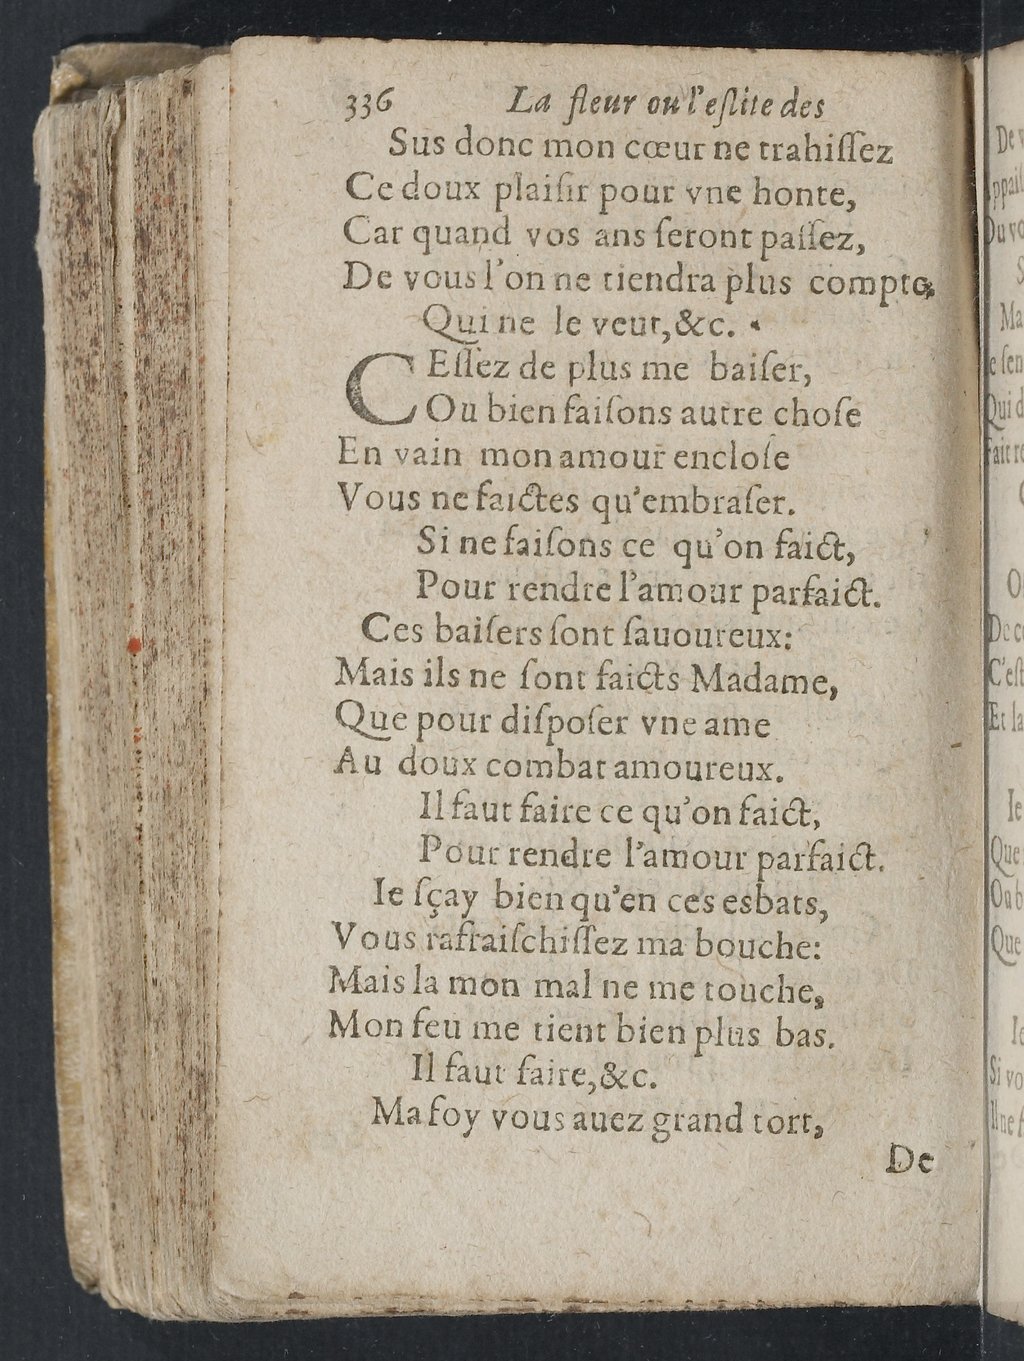 336 La fleur ou l'eſlite des
Sus donc mon cœur ne trahiſſez
Ce doux plaiſir pour vne honte,
Car quand vos ans ſeront paſſez,
De vous l'on ne tiendra plus compte,
Qui ne le veut, &c.
CEſſez de plus me baiſer,
Ou bien faiſons autre choſe
En vain mon amour encloſe
Vous ne faictes qu'embraſer.
Si ne faiſons ce qu'on faict,
Pour rendre l'amour parfaict.
Ces baiſers ſont ſauoureux:
Mais ils ne ſont faicts Madame,
Que pour diſpoſer vne ame
Au doux combat amoureux.
Il faut faire ce qu'on faict,
Pour rendre l'amour parfaict.
Ie ſçay bien qu'en ces esbats,
Vous rafraiſchiſſez ma bouche:
Mais la mon mal ne me touche,
Mon feu me tient bien plus bas.
Il faut faire, &c.
Ma foy vous auez grand tort,
De